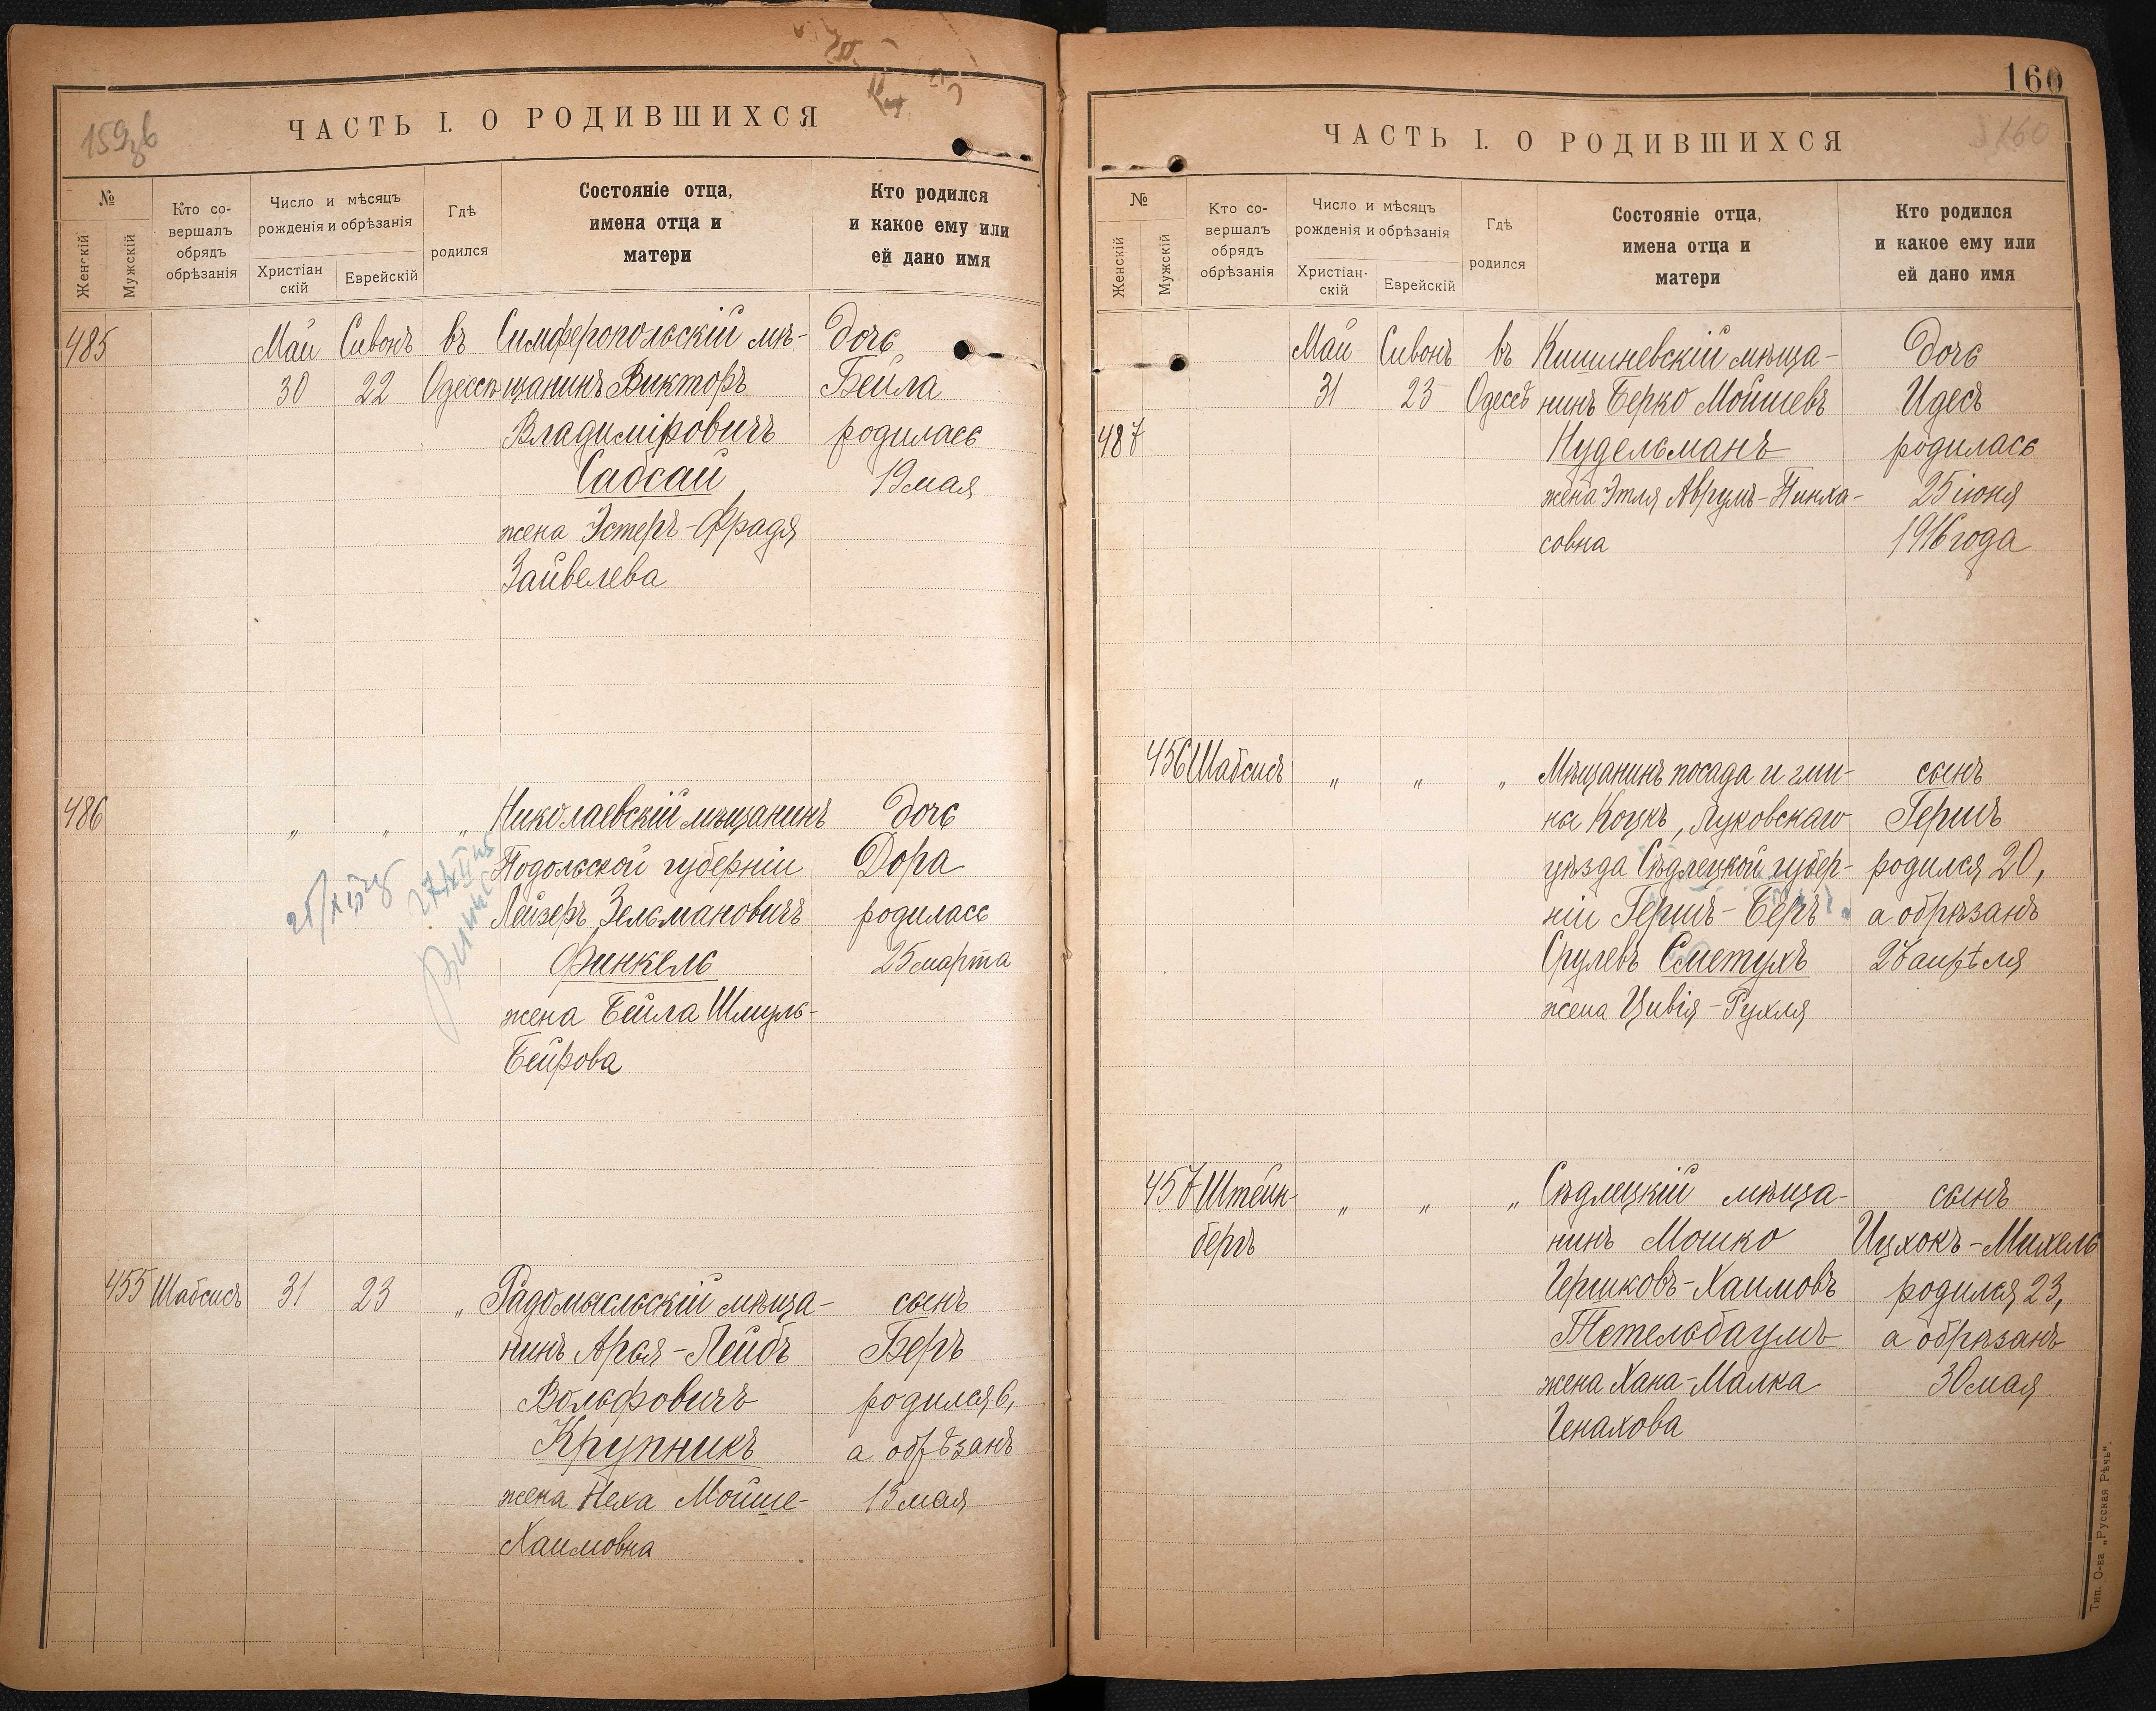 159об
ЧАСТЬ I. О РОДИВШИХСЯ
№
Женскій
Мужскій
Кто со-
вершалъ
обрядъ
обрѣзанія
Число и мѣсяцъ
рожденія и обрѣзанія
Христіан
скій
Еврейскій
Гдѣ
родился
Состояніе отца,
имена отца и
матери
Кто родился
и какое ему или
ей дано имя
485 Май Сивонъ въ Симферопольскій мѣ- дочь
30 22 Одессѣ щанинъ Викторъ Бейла
Владиміровичъ родилась
Сабсай, 19 мая
жена Эстеръ-Фрадя
Зайвелева
486 „ „ „ Николаевскій мѣщанинъ дочь
Подольской губерніи Дора
Лейзеръ Зельмановичъ родилась
Финкель 25 марта
жена Бейла Шмуль-
Бейрова
455 Шабсисъ 31 23 „ Радомысльскій мѣща- сынъ
нинъ Арья-Лейбъ Беръ
Вольфовичъ родился 6,
Крупникъ а обрѣзанъ
жена Неха Мойше- 13 мая
Хаимовна
160
160
ЧАСТЬ I. О РОДИВШИХСЯ
№
Женскій
Мужскій
Кто со-
вершалъ
обрядъ
обрѣзанія
Число и мѣсяцъ
рожденія и обрѣзанія
Христіан-
скій
Еврейскій
Гдѣ
родился
Состояніе отца,
имена отца и
матери
Кто родился
и какое ему или
ей дано имя
Май Сивонъ въ Кишиневскій мѣща- дочь
31 23 Одессѣ нинъ Берко Мойшевъ Идесъ
487 Нудельманъ родилась
жена Этля Аврумъ-Пинха- 25 іюня
совна 1916 года
456 Шабсисъ „ „ „ Мѣщанинъ посада и гми- сынъ
ны Коцкъ, Луковскаго Гершъ
уѣзда Сѣдлецкой губер- родился 20,
ніи Гершъ-Беръ а обрѣзанъ
Срулевъ Сметухъ 27 апрѣля
жена Цивія-Рухля
457 Штейн- „ „ „ Сѣдлецкій мѣща- сынъ
бергъ нинъ Мошко Ицхокъ-Михель
Гершковъ-Хаимовъ родился 23,
Тетельбаумъ а обрѣзанъ
жена Хана-Малка 30 мая
Генахова
Тип. О-ва „Русская Рѣчь“.